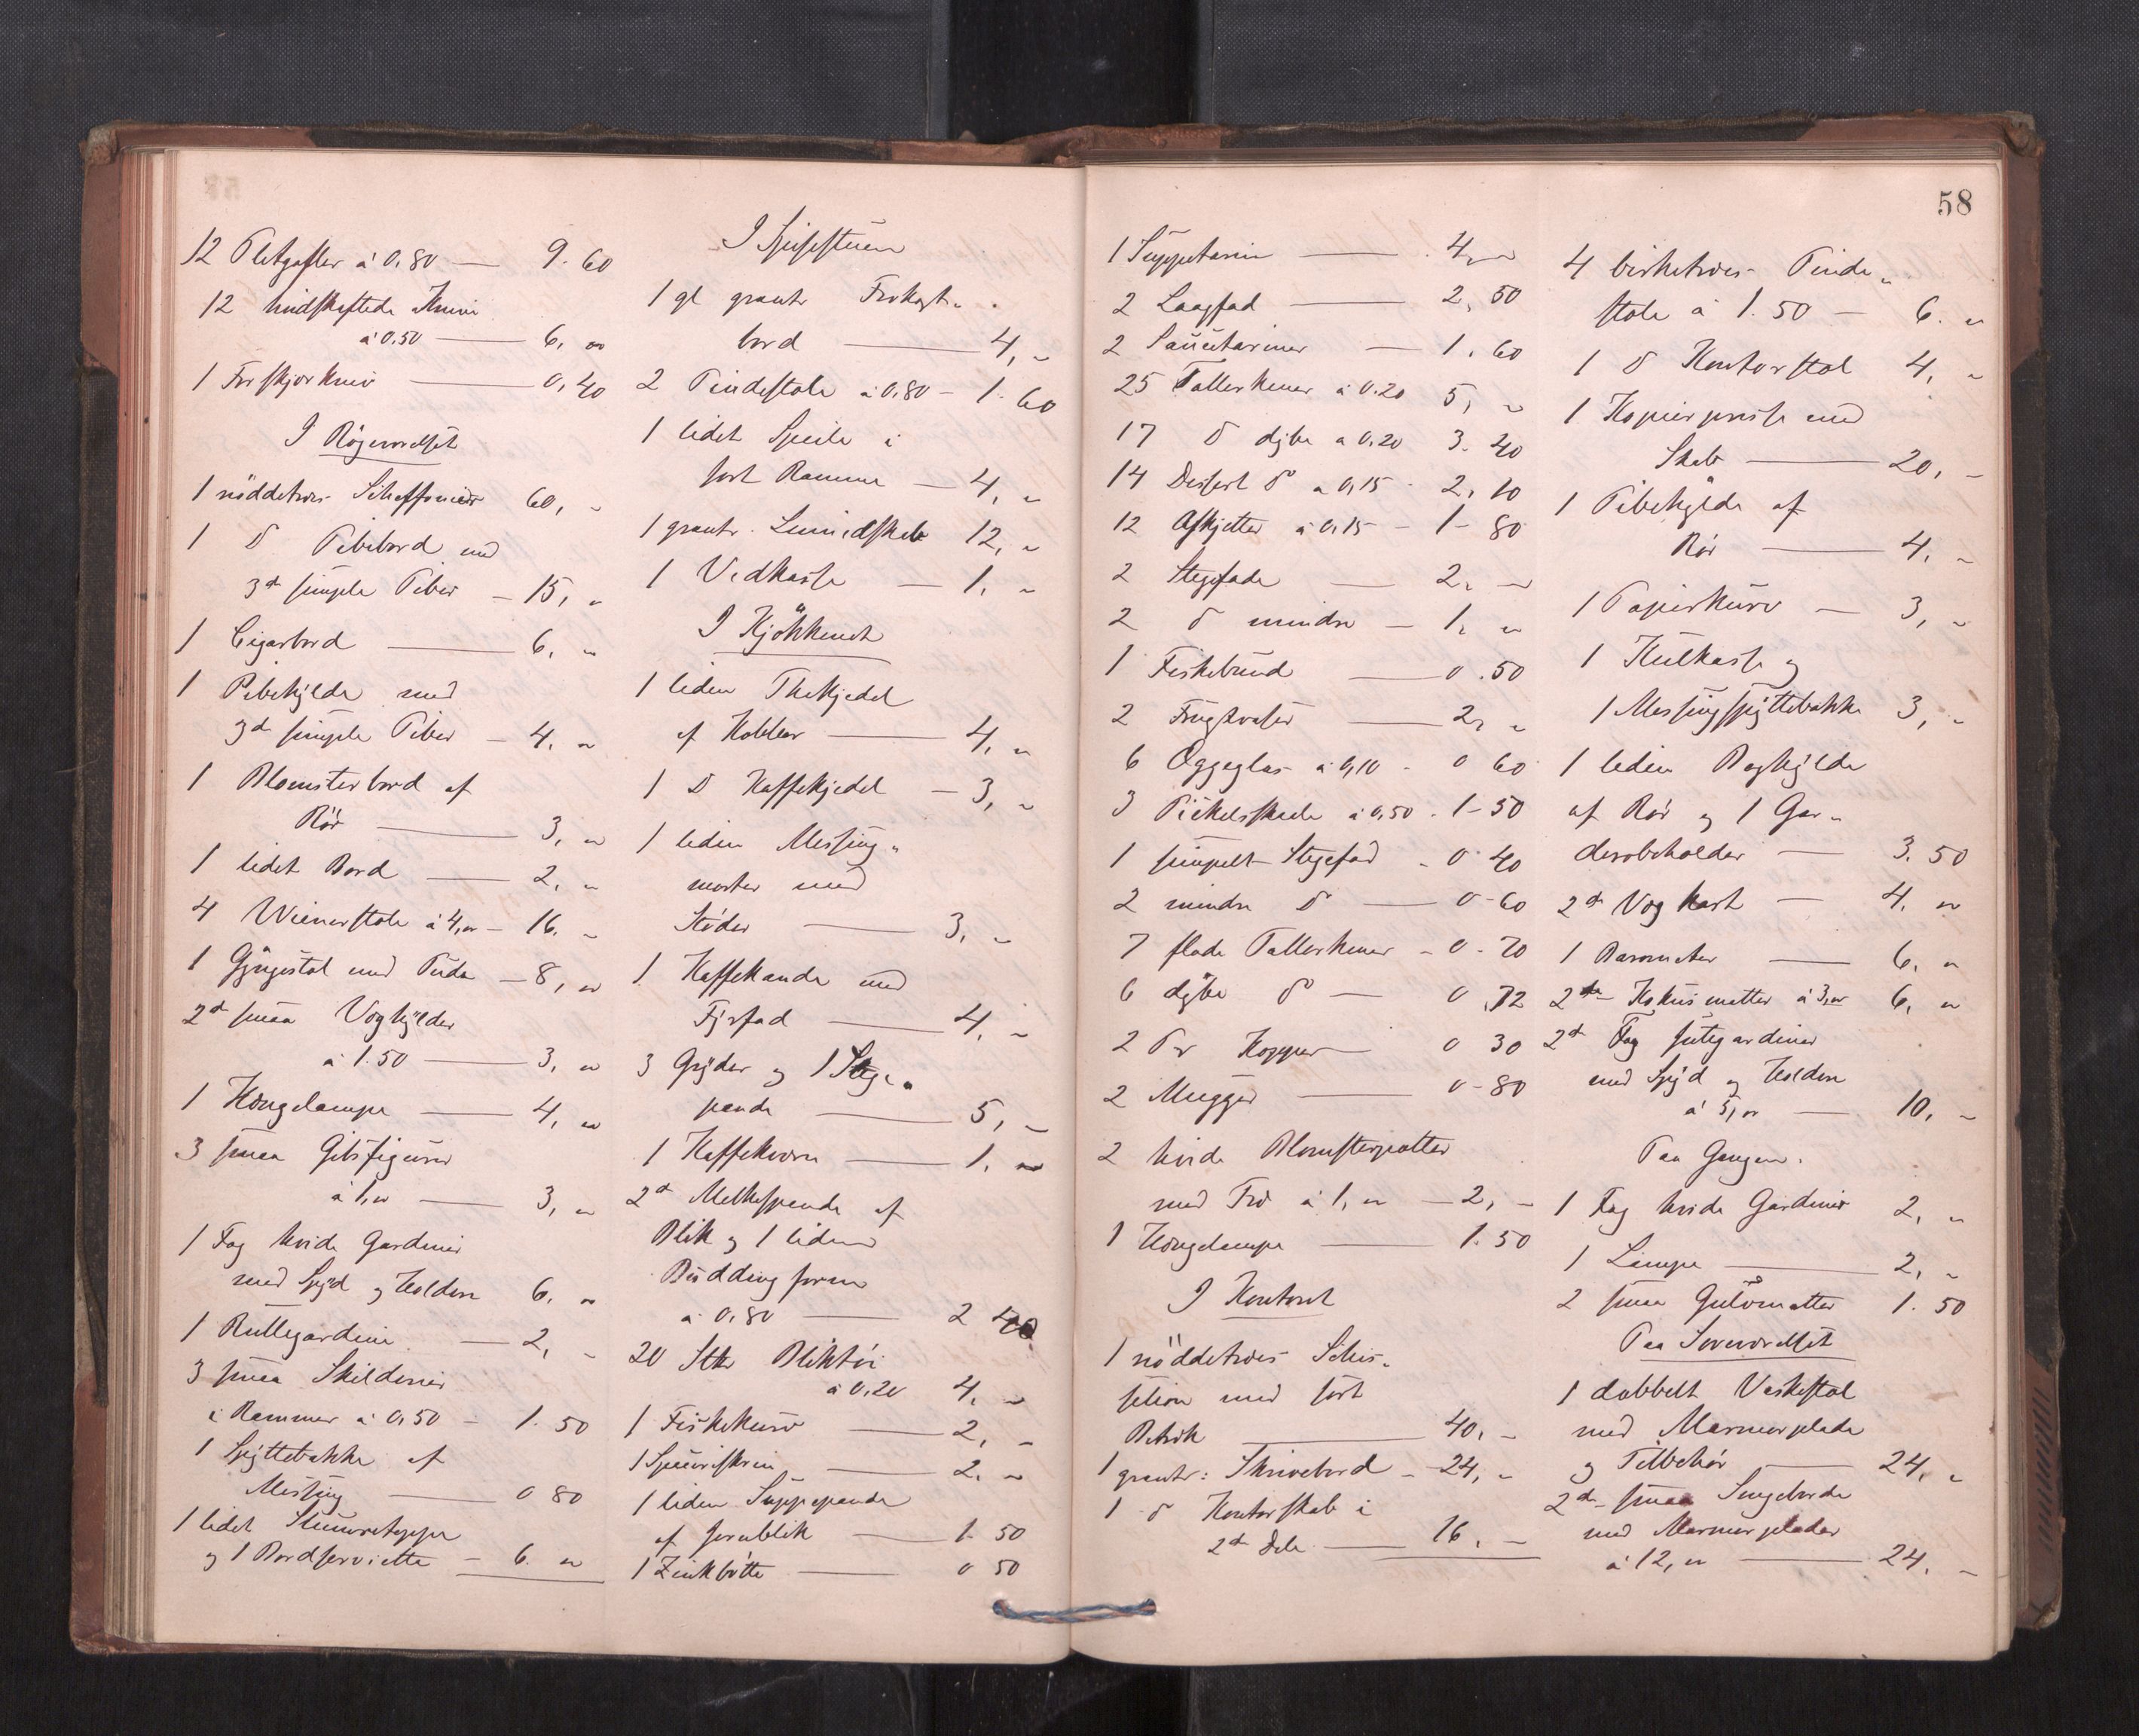 58
12 Pletgafler à 0.80 — 9.60
12 hvidskaftede Knive
à 0.50 — 6, "
1 Forskjærkniv — 0,40
I Røgeværelset
1 nøddetræs Scheffonier 60, "
1 d° Pibebord med
3d simple Piber — 15, "
1 Cigarbord — 6, "
1 Pibehylde med
3d simple Piber — 4, "
1 Blomsterbord af
Rör — 3, "
1 lidet Bord — 2, "
4 Wienerstole à 4, " — 16, "
1 Gyngestol med Pude — 8, "
2d smaa Væghylder
à 1.50 — 3, "
1 Hængelampe — 4, "
3 smaa Gibsfigurer
à 1, " — 3, "
1 Fag hvide Gardiner
med Spyd og Holdere 6, "
1 Rullegardin — 2, "
3 smaa Skilderier
i Rammer à 0,50 — 1.50
1 Spyttebakke af
Messing — 0 80
1 lidet Stueværetæppe
og 1 Bordserviette — 6. "
I Spisestuen
1 gl grantr Frokost-
bord — 4, "
2 Pindestole à 0,80 — 1.60
1 lidet Speile i
sort Ramme — 4, "
1 grantr. Linnedskab 12, "
1 Vedkasse — 1, "
I Kjökkenet
1 liden Thekjedel
af Kobber — 4, "
1 D° Kaffekjedel — 3, "
1 liden Messing-
morter med
Støder — 3, "
1 Kaffekande med
Fyrfad — 4, "
3 Gryder og 1 Stege-
pande — 5, "
1 Kaffekværn — 1, "
2d Melkespande af
Blik og 1 liden
Buddingform
à 0,80 — 2 40
20 Stkr Bliktøi
à 0,20 4, "
1 Fiskekurv — 2, "
1 — 2, "
1 liden Suppepande
af Jernblik — 1.50
1 Zinkbøtte — 0 50
1 Suppeterrin — 4, "
2 Laagfad — 2,50
2 Sauceterriner — 1.60
25 Tallerkener à 0.20 5, "
17 d° dybe a 0.20 3.40
14 Dessert d° a 0,15 2,10
12 Asjetter à 0,15 — 1-80
2 Stegefade — 2, "
2 d° mindre — 1, "
1 Fiskebund — 0.50
2 Frugtvaser — 2, "
6 Æggeglas à 0,10 - 0 60
3 Pickelsskaale à 0,50 - 1-50
1 simpelt Stegefad - 0 40
2 mindre D° — 0-60
7 flade Tallerkener — 0-70
6 dybe d° — 0,72
2 Pr Kopper — 0 30
2 Mugger — 0-80
2 hvide Blomsterpotter
med Fod à 1, " — 2, "
1 Hængelampe — 1.50
I Kontoret
1 nøddetræs Schæs-
selion med sort
Betræk — 40, "
1 grantr: Skrivebord — 24, "
1 d° Kontorskab i
2d Dele — 16, "
4 birketræs Pinde-
stole à 1.50 — 6. "
1 d° Kontorstol 4, "
1 Kopierpresse med
Skab — 20, "
1 Pibehylde af
Rör — 4, "
1 Papirkurv — 3, "
1 Kulkasse og
1 Messingspyttebakke 3, "
1 liden Boghylde
af Rör og 1 Gar-
derobeholder — 3.50
2d Vægkart — 4, "
1 Barometer — 6, "
2de Kokusmatter à 3, " 6, "
2d Fag Jutegardiner
med Spyd og Holdere
à 5, " — 10, "
Paa Gangen.
1 Fag hvide Gardiner 2, "
1 Lampe — 2, "
2 smaa Gulvmatter 1.50
Paa Soveværelset
1 dobbelt Vaskestol
med Marmorplade
og Tilbehør — 24, "
2d smaa Sengeborde
med Marmorplader
à 12, " — 24, "